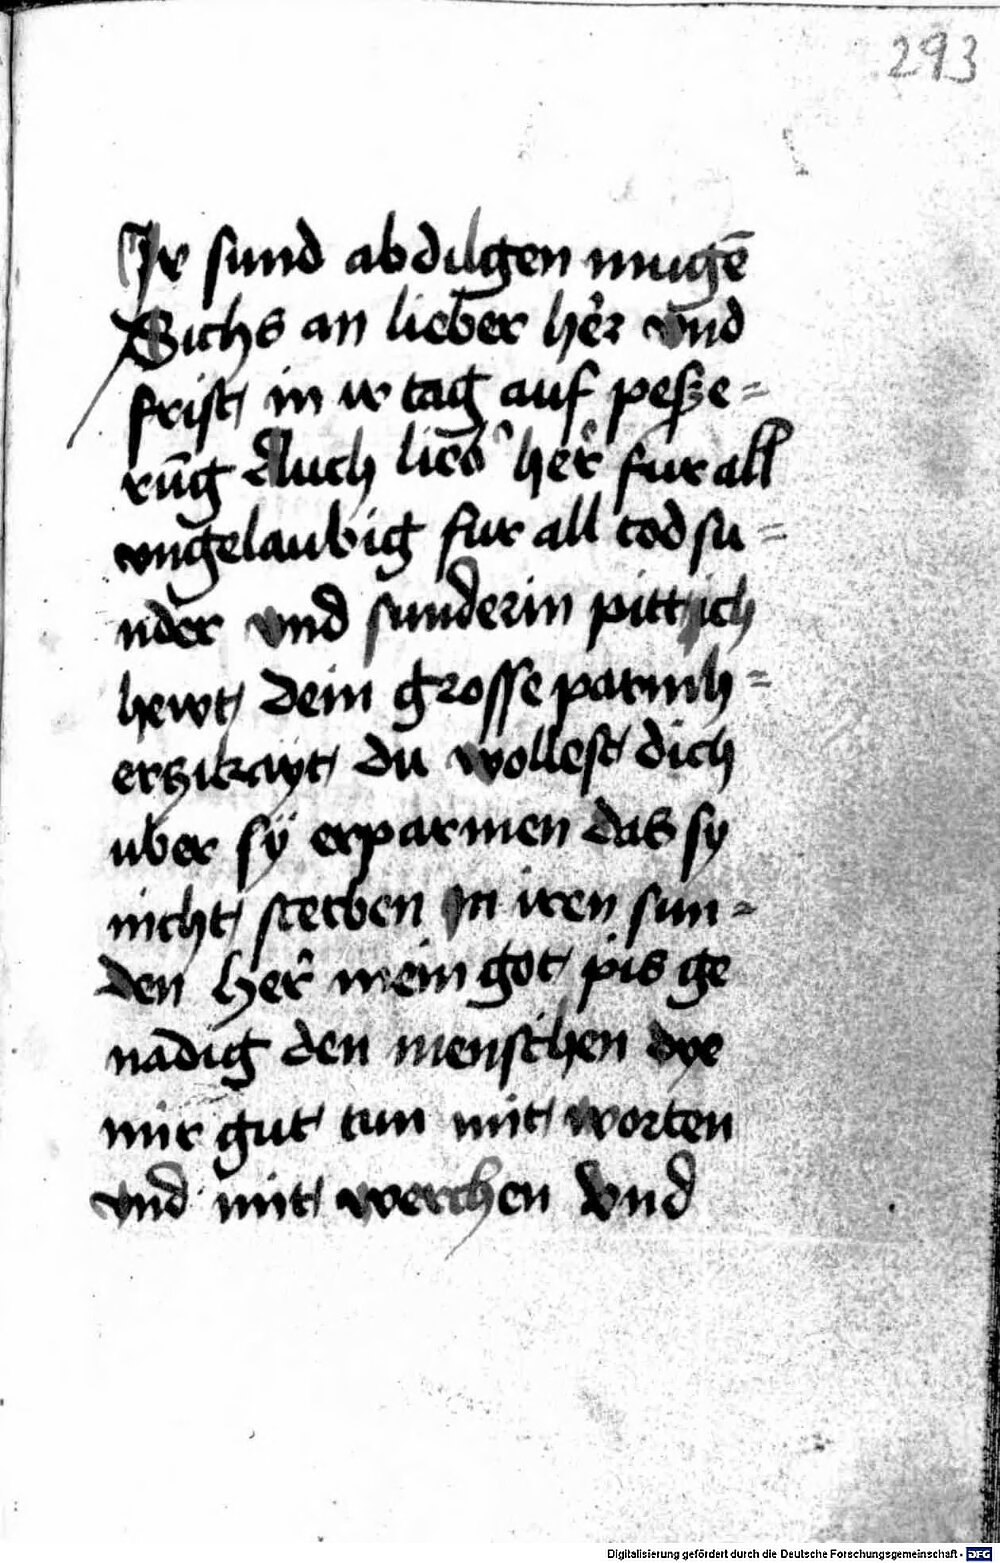 293
Jr sund abdilgen mugē
Sichs an lieber her̂ vnd
frist in ir tag auf pesze=
rūg Auch lieb' her̂ fur all
vngelaubig fur all todsu=
nder vnd sunderin pitt ich
hewt dein grosse parmh=
ertzikayt du wollest dich
uber sÿ erparmen das sy
nicht sterben In iren sun=
den her̂ mein got pis ge
nadig den menschen dye
mir gut tun mit worten
vnd mit werchen vnd
Digitalisierung gefördert durch die Deutsche Forschungsgemeinschaft - DFG